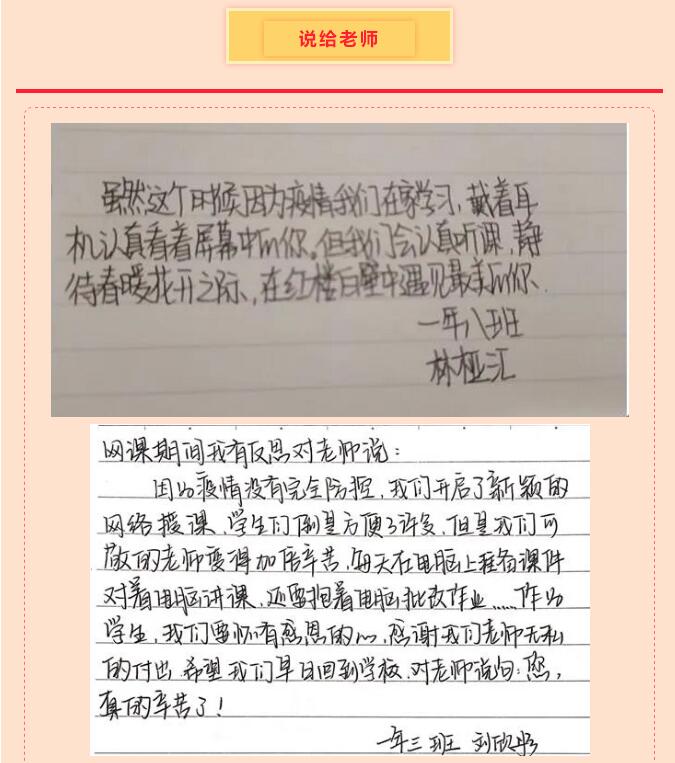 说给老师
虽然这个时候因为疫情我们在家学习,戴着耳
机认真看着屏幕中的你。但我们会认真听课,静
待春暖花开之际,在红楼白壁中遇见最美的你.
一年八班
林桠汇
网课期间我有反思对老师说:
因为疫情没有完全防控,我们开启了新颖的
网络授课、学生们倒是方便了许多,但是我们可
敬的老师变得加倍辛苦,每天在电脑上准备课件
对着电脑讲课、还要抱着电脑批改作业......作为
学生,我们要怀有感恩的心,感谢我们老师无私
的付出.希望我们早日回到学校.对老师说句:您,
真的辛苦了!
一年三班 刘欣